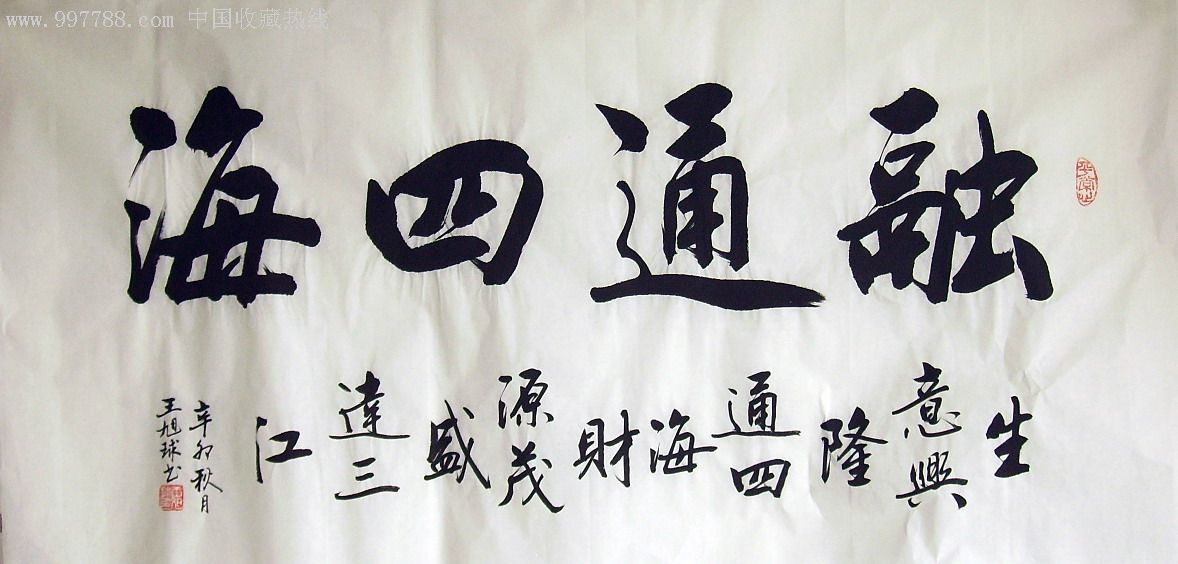 www.997788.com 中国收藏热线
融通四海
生意興隆通四海財源茂盛達三江
辛卯秋月
王旭球书